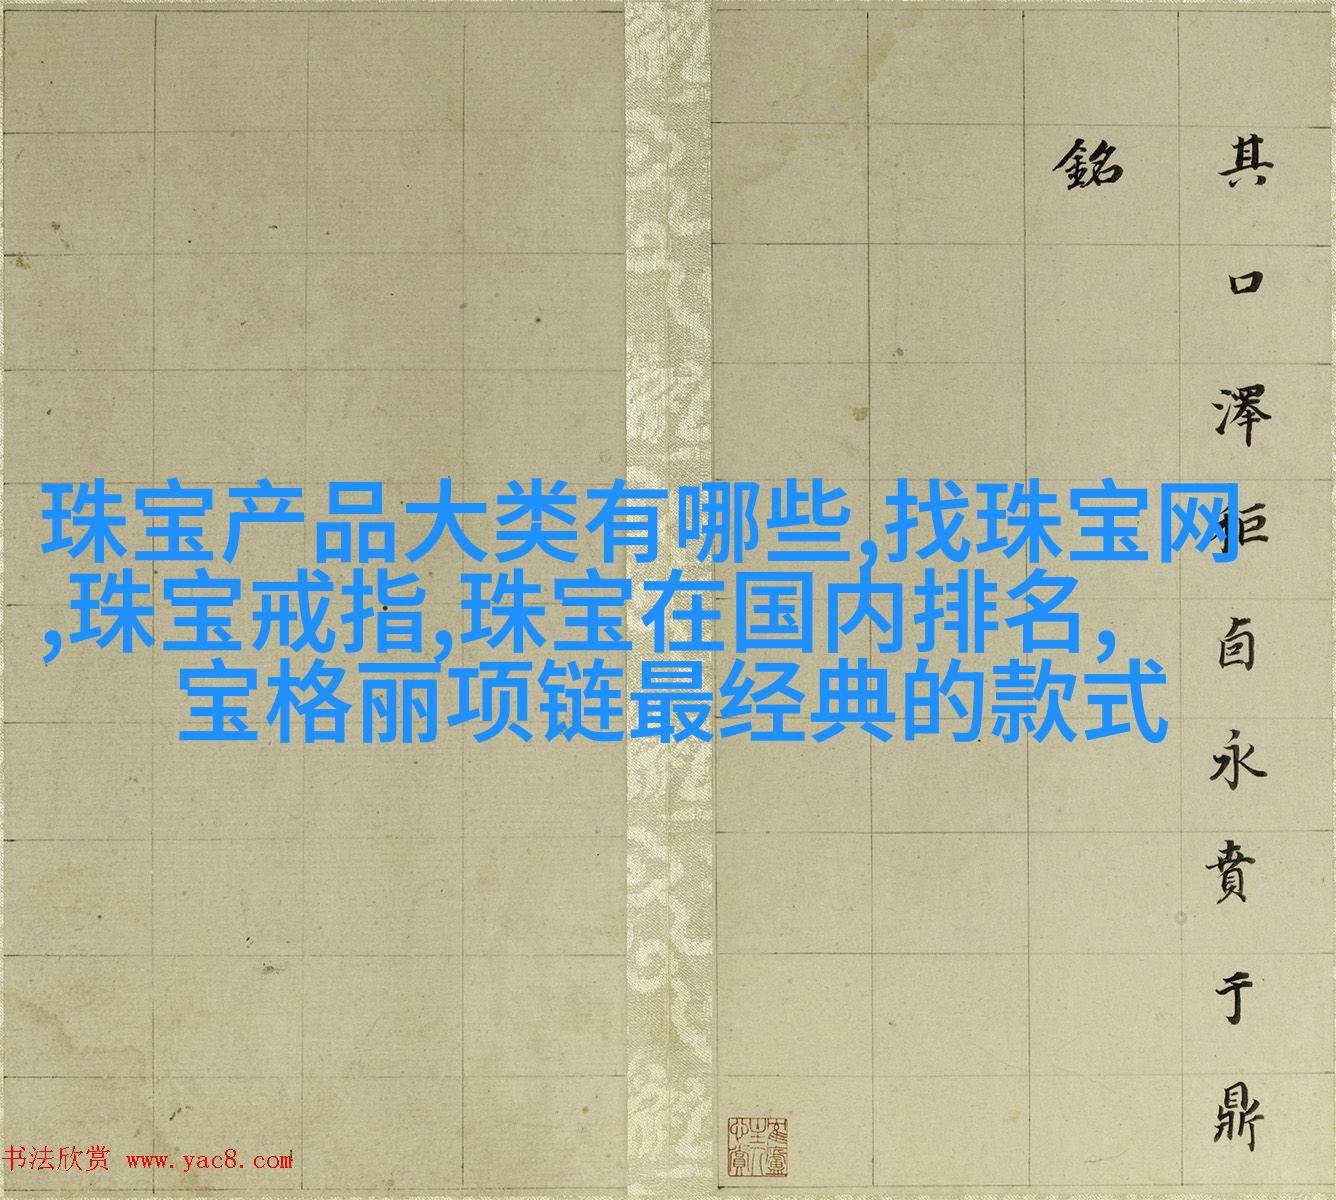 珠宝产品大类有哪些,找珠宝网
,珠宝戒指,珠宝在国内排名,
宝格丽项链最经典的款式
其口澤秬卣永賁于鼎
銘
书法欣赏 www.yac8.com